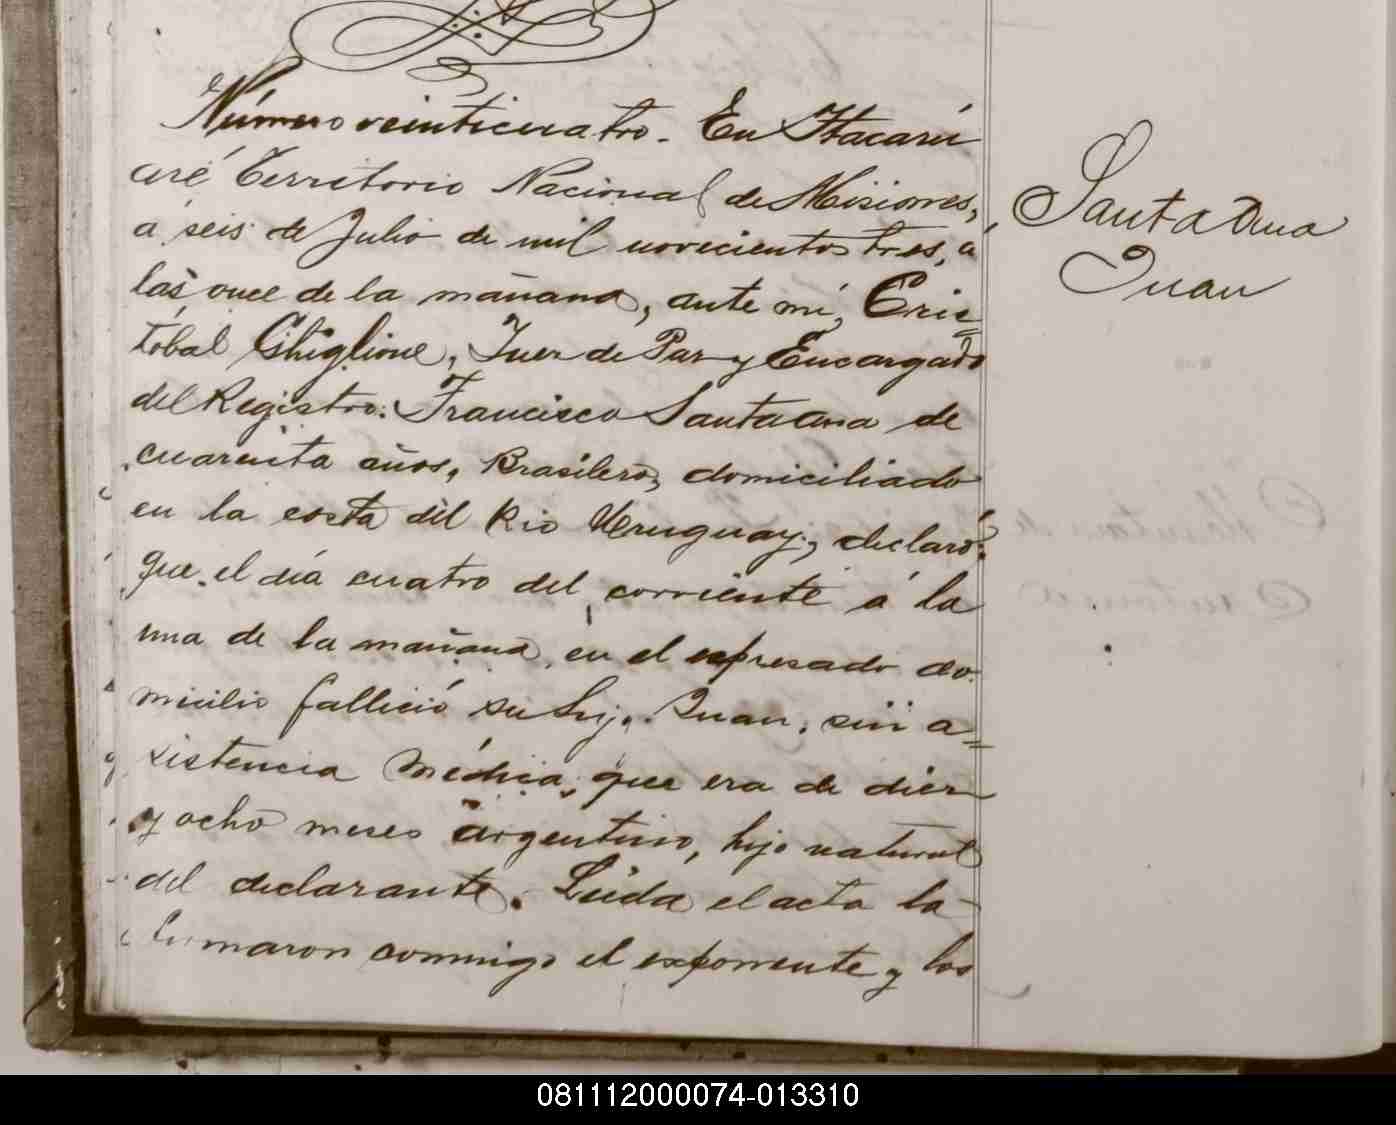 Número veinticuatro. En Itacarú
aré Territorio Nacional de Misiones,
á seis de Julio de mil novecientos tres, á
las once de la mañana, ante mí, Cris=
tóbal Ghiglione, Juez de Paz y Encargado
del Registro: Francisco Santa ana de
cuarenta años, Brasilero, domiciliado
en la costa del Rio Uruguay, declaró:
que el día cuatro del corriente á la
una de la mañana, en el expresado do-
micilio falleció su hijo Juan, sin a=
sistencia médica, que era de diez
y ocho meses argentino, hijo natural
del declarante. Leida el acta la
firmaron conmigo el exponente y los
Santa Ana
Juan
081112000074-013310